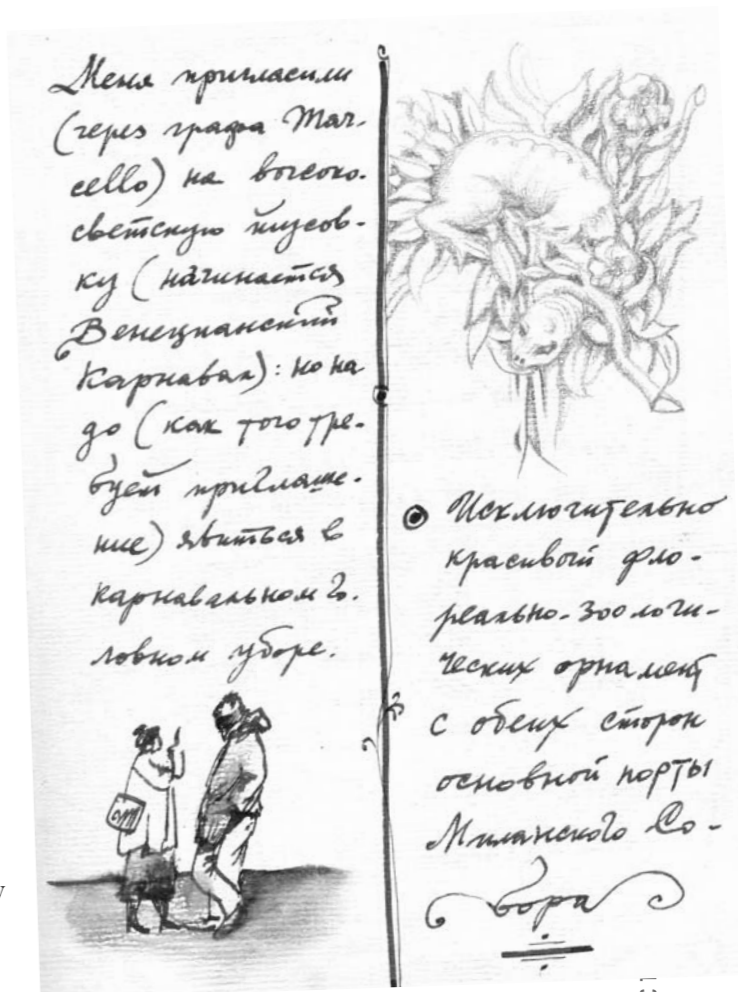 Меня пригласили
(через графа Mar-
cello) на высоко-
светскую тусов-
ку (начинается
Венецианский
Карнавал): но на
до (как того тре-
бует приглаше-
ние) явиться в
карнавальном го-
ловном уборе.
Исключительно
красивый фло-
реально-зоологи-
ческих орнамент
с обеих сторон
основной порты
Миланского Со-
бора